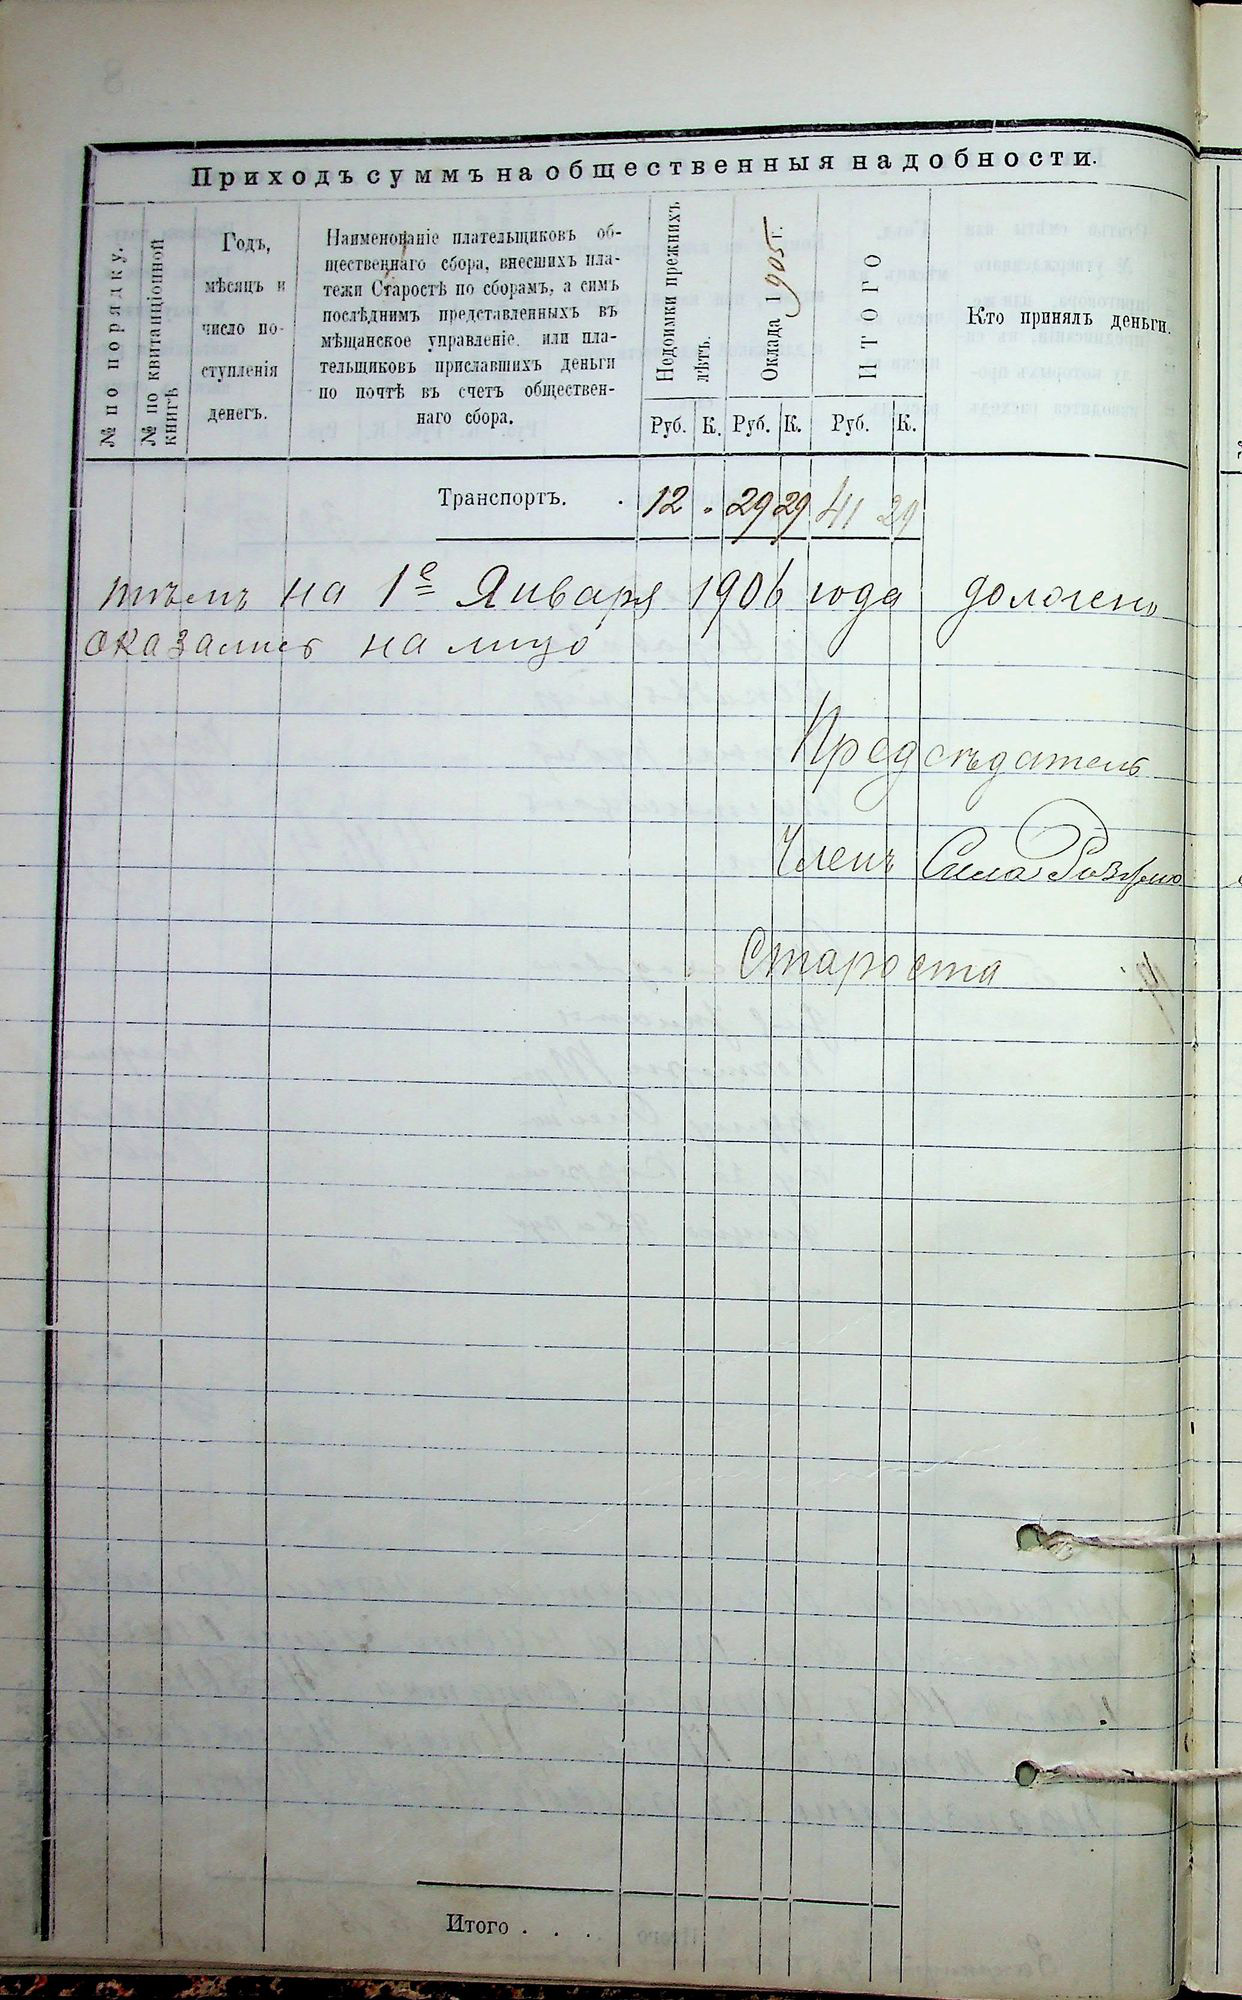 Приходъ суммъ на общественныя надобности.
№ по порядку.
№ по квитанціонной
книгѣ
Годъ,
мѣсяцъ и
число по-
ступленія
денегъ.
Наименованіе плательщиковъ об-
щественнаго сбора, внесшихъ пла-
тежи Старостѣ по сборамъ, а симъ
послѣднимъ представленныхъ въ
мѣщанское управленіе. или пла-
тельщиковъ приславшихъ деньги
по почтѣ въ счетъ обществен-
наго сбора.
Недоимки прежнихъ
лѣтъ.
Оклада 1905 г.
ИТОГО
Кто принялъ деньги.
Руб. К. Руб. К. Руб. К.
Транспортъ. . 12 „ 29 29 41 29
на 1е Января 1906 года
оказалось на лицо
Предсѣдатель
Членъ Сила
Староста
Итого . . .